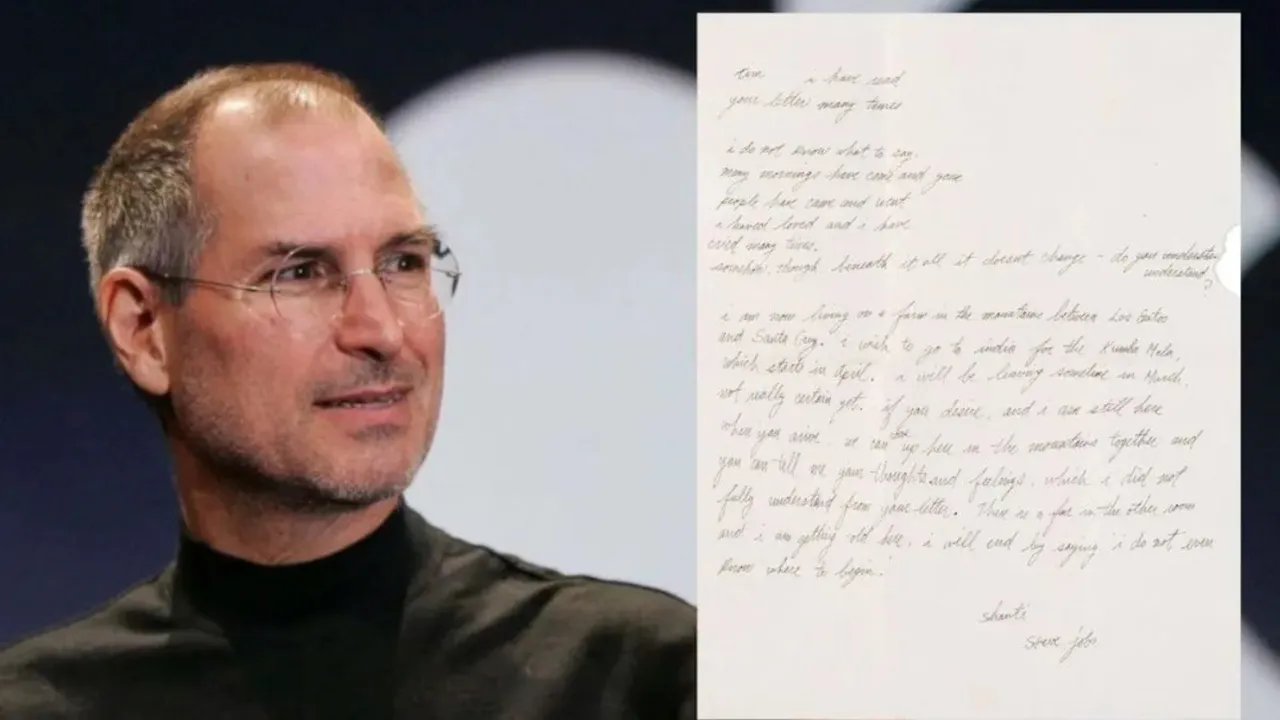 tim i have read
your letter many times
i do not know what to say.
many mornings have come and gone
people have came and went
i haved loved and i have
cried many times.
somehow, though, beneath it all it doesnt change - do you understan
understand?
i am now living on a farm in the mountains between Los Gatos
and Santa Cruz. i wish to go to india for the Kumba Mela,
which starts in April. i will be leaving sometime in March,
not really certain yet. if you desire, and i am still here
when you arive, we can be up here in the mountains together and
you can tell me your thoughts and feelings, which i did not
fully understand from your letter. There is a fire in the other room
and i am getting cold here. i will end by saying i do not even
know where to begin.
shanti
steve jobs